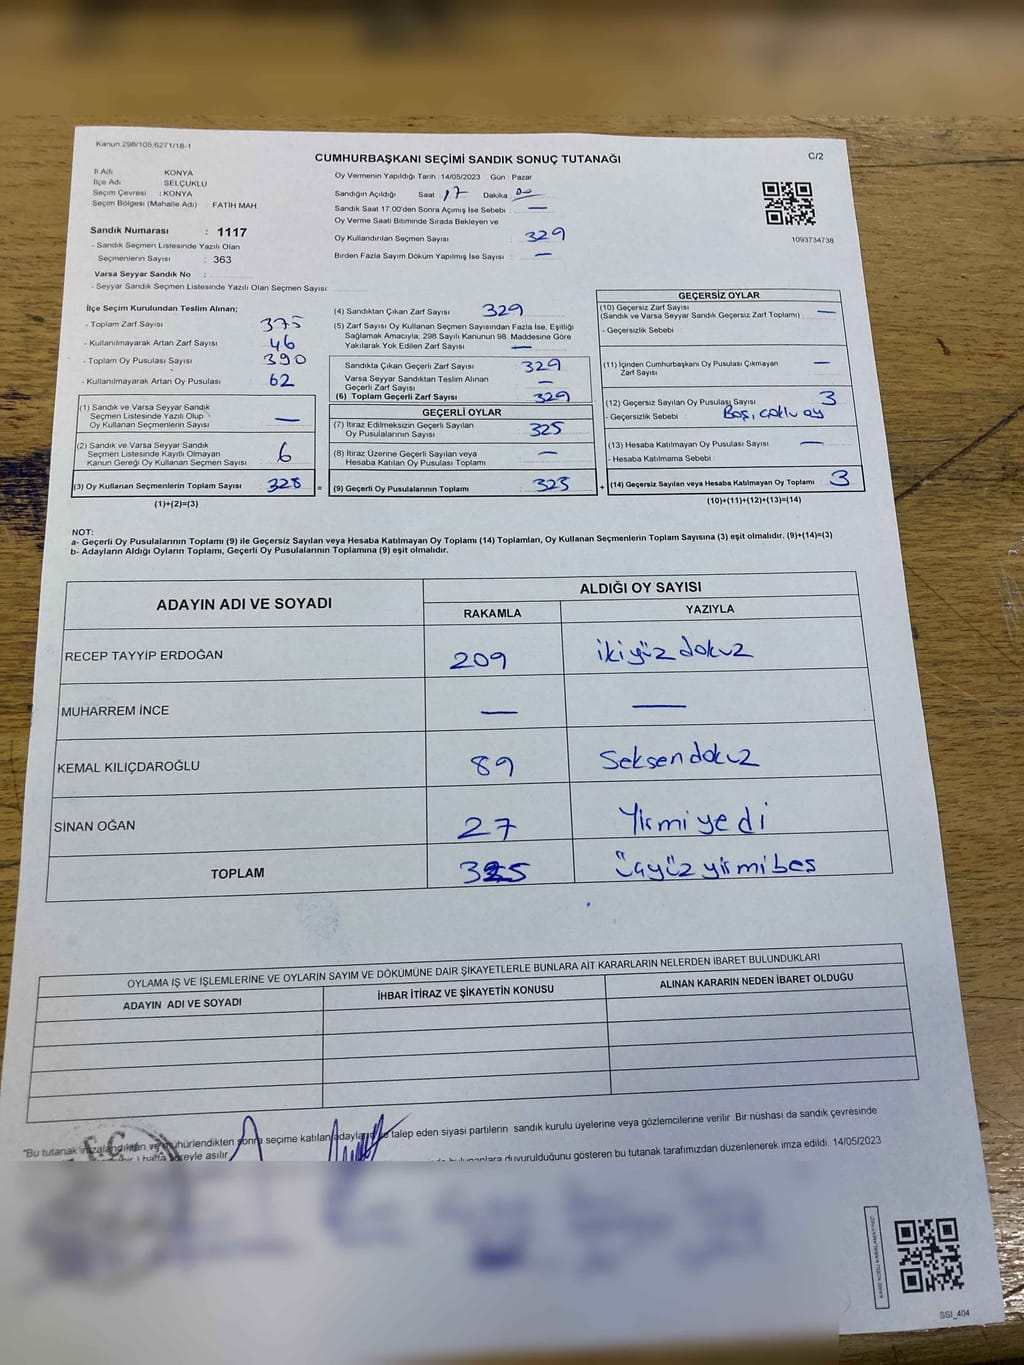 Kanun 298/105;6271/18-1
CUMHURBAŞKANI SEÇİMİ SANDIK SONUÇ TUTANAĞI
C/2
İl Adı KONYA
İlçe Adı SELÇUKLU
Seçim Çevresi : KONYA
Seçim Bölgesi (Mahalle Adı) FATİH MAH
Sandık Numarası : 1117
- Sandık Seçmen Listesinde Yazılı Olan
Seçmenlerin Sayısı : 363
Varsa Seyyar Sandık No :
- Seyyar Sandık Seçmen Listesinde Yazılı Olan Seçmen Sayısı
Oy Vermenin Yapıldığı Tarih : 14/05/2023 Gün : Pazar
Sandığın Açıldığı Saat : 17 Dakika : 00
Sandık Saat 17.00'den Sonra Açılmış İse Sebebi —
Oy Verme Saati Bitiminde Sırada Bekleyen ve
Oy Kullandırılan Seçmen Sayısı 329
Birden Fazla Sayım Döküm Yapılmış İse Sayısı : —
1093734738
İlçe Seçim Kurulundan Teslim Alınan;
- Toplam Zarf Sayısı 375
- Kullanılmayarak Artan Zarf Sayısı 46
- Toplam Oy Pusulası Sayısı 390
- Kullanılmayarak Artan Oy Pusulası 62
(1) Sandık ve Varsa Seyyar Sandık
Seçmen Listesinde Yazılı Olup
Oy Kullanan Seçmenlerin Sayısı —
(2) Sandık ve Varsa Seyyar Sandık
Seçmen Listesinde Kayıtlı Olmayan
Kanun Gereği Oy Kullanan Seçmen Sayısı 6
(3) Oy Kullanan Seçmenlerin Toplam Sayısı 328
(1)+(2)=(3)
(4) Sandıktan Çıkan Zarf Sayısı 329
(5) Zarf Sayısı Oy Kullanan Seçmen Sayısından Fazla İse, Eşitliği
Sağlamak Amacıyla, 298 Sayılı Kanunun 98. Maddesine Göre
Yakılarak Yok Edilen Zarf Sayısı —
Sandıkta Çıkan Geçerli Zarf Sayısı 329
Varsa Seyyar Sandıktan Teslim Alınan
Geçerli Zarf Sayısı —
(6) Toplam Geçerli Zarf Sayısı 329
GEÇERLİ OYLAR
(7) İtiraz Edilmeksizin Geçerli Sayılan
Oy Pusulalarının Sayısı 325
(8) İtiraz Üzerine Geçerli Sayılan veya
Hesaba Katılan Oy Pusulası Toplamı —
= (9) Geçerli Oy Pusulalarının Toplamı 325
GEÇERSİZ OYLAR
(10) Geçersiz Zarf Sayısı
(Sandık ve Varsa Seyyar Sandık Geçersiz Zarf Toplamı) —
- Geçersizlik Sebebi :
(11) İçinden Cumhurbaşkanı Oy Pusulası Çıkmayan
Zarf Sayısı —
(12) Geçersiz Sayılan Oy Pusulası Sayısı 3
- Geçersizlik Sebebi : Boş, çoklu oy
(13) Hesaba Katılmayan Oy Pusulası Sayısı —
- Hesaba Katılmama Sebebi
+ (14) Geçersiz Sayılan veya Hesaba Katılmayan Oy Toplamı 3
(10)+(11)+(12)+(13)=(14)
NOT:
a- Geçerli Oy Pusulalarının Toplamı (9) ile Geçersiz Sayılan veya Hesaba Katılmayan Oy Toplamı (14) Toplamları, Oy Kullanan Seçmenlerin Toplam Sayısına (3) eşit olmalıdır. (9)+(14)=(3)
b- Adayların Aldığı Oyların Toplamı, Geçerli Oy Pusulalarının Toplamına (9) eşit olmalıdır.
ADAYIN ADI VE SOYADI
ALDIĞI OY SAYISI
RAKAMLA YAZIYLA
RECEP TAYYİP ERDOĞAN 209 ikiyüz dokuz
MUHARREM İNCE — —
KEMAL KILIÇDAROĞLU 89 Seksendokuz
SİNAN OĞAN 27 Yirmiyedi
TOPLAM 325 üçyüz yirmibes
OYLAMA İŞ VE İŞLEMLERİNE VE OYLARIN SAYIM VE DÖKÜMÜNE DAİR ŞİKAYETLERLE BUNLARA AİT KARARLARIN NELERDEN İBARET BULUNDUKLARI
ADAYIN ADI VE SOYADI İHBAR İTİRAZ VE ŞİKAYETİN KONUSU ALINAN KARARIN NEDEN İBARET OLDUĞU
*Bu tutanak imzalandıktan ve mühürlendikten sonra seçime katılan adayların talep eden siyasi partilerin sandık kurulu üyelerine veya gözlemcilerine verilir .Bir nüshası da sandık çevresinde
hafta süreyle asılır duyurulduğunu gösteren bu tutanak tarafımızdan düzenlenerek imza edildi. 14/05/2023
T.C.
SSI_404